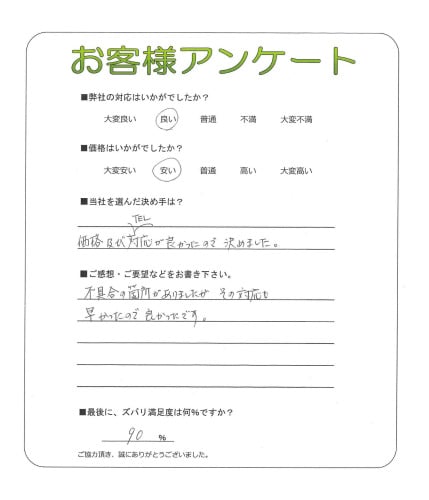 お客様アンケート
■弊社の対応はいかがでしたか？
大変良い 良い 普通 不満 大変不満
■価格はいかがでしたか？
大変安い 安い 普通 高い 大変高い
■当社を選んだ決め手は？
TEL
価格及び対応が良かったので 決めました。
■ご感想・ご要望などをお書き下さい。
不具合の箇所がありましたが その対応も
早かったので 良かったです。
■最後に、ズバリ満足度は何%ですか？
90 %
ご協力頂き、誠にありがとうございました。